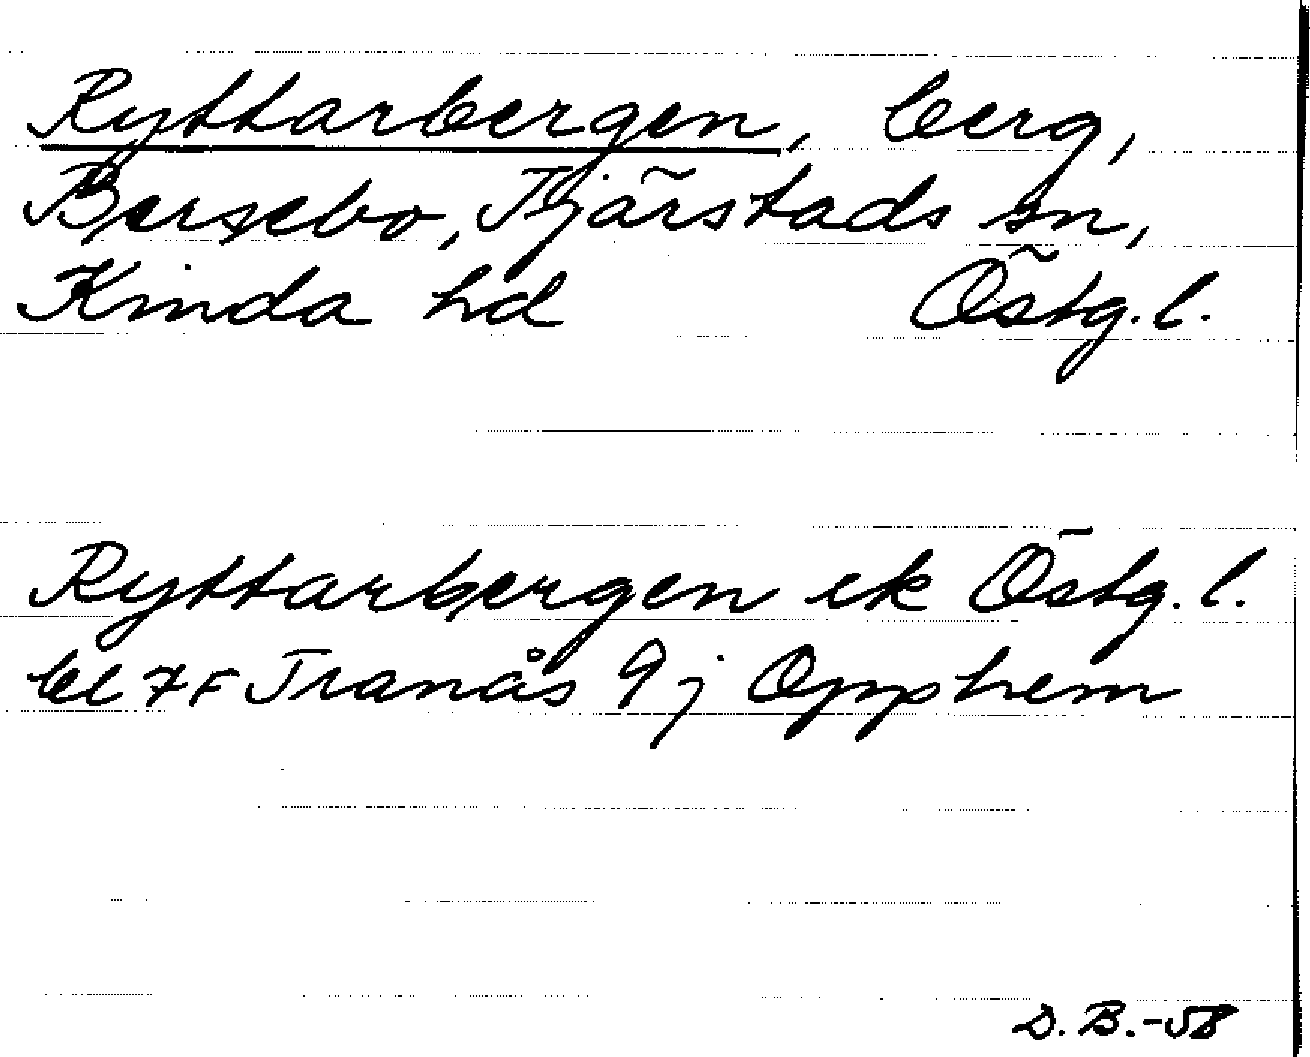 Ryttarbergen, berg,
Bersebo, Tjärstads sn,
Kinda hd Östg. l.
Ryttarbergen ek Östg. l.
bl 7F Tranås 9j Opphem
D. B.-58